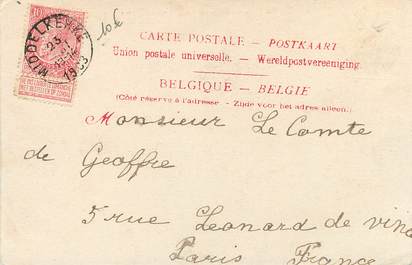 10
MIDDELKERKE
1903
10 €
CARTE POSTALE – POSTKAART
Union postale universelle. – Wereldpostvereeniging.
BELGIQUE – BELGIE
(Côté réservé à l'adresse – Zijde voor het adres alleen.)
Monsieur Le Comte
de Geoffre
5 rue Leonard de vinci
Paris France